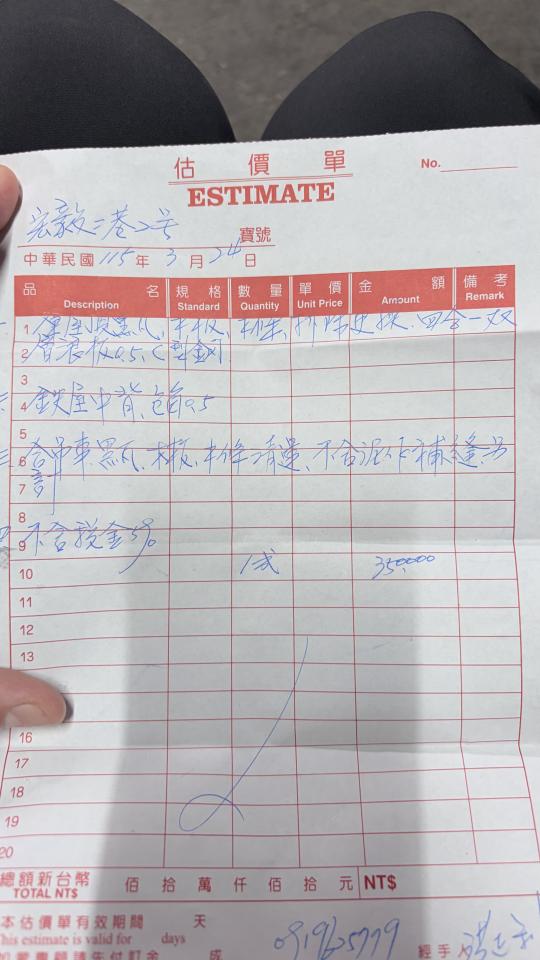 估價單
No.
ESTIMATE
宏毅二巷2号 寶號
中華民國115年3月24日
品名 規格 數量 單價 金額 備考
Description Standard Quantity Unit Price Amount Remark
1 黑瓦、木板、木條、拆除更換、四合一双
2 層浪板0.5、C型鋼
3
4 鉄屋中背、0.5
5
6 含吊車、黑瓦、木板、木條清運、不含泥作補縫、另
7 計
8
9 不含稅金5%
10 1式 350000
11
12
13
16
17
18
19
20
總額新台幣 佰拾萬仟佰拾元 NT$
TOTAL NT$
本估價單有效期間 天
This estimate is valid for days
0919625779 經手人
如蒙惠顧請先付訂金 成